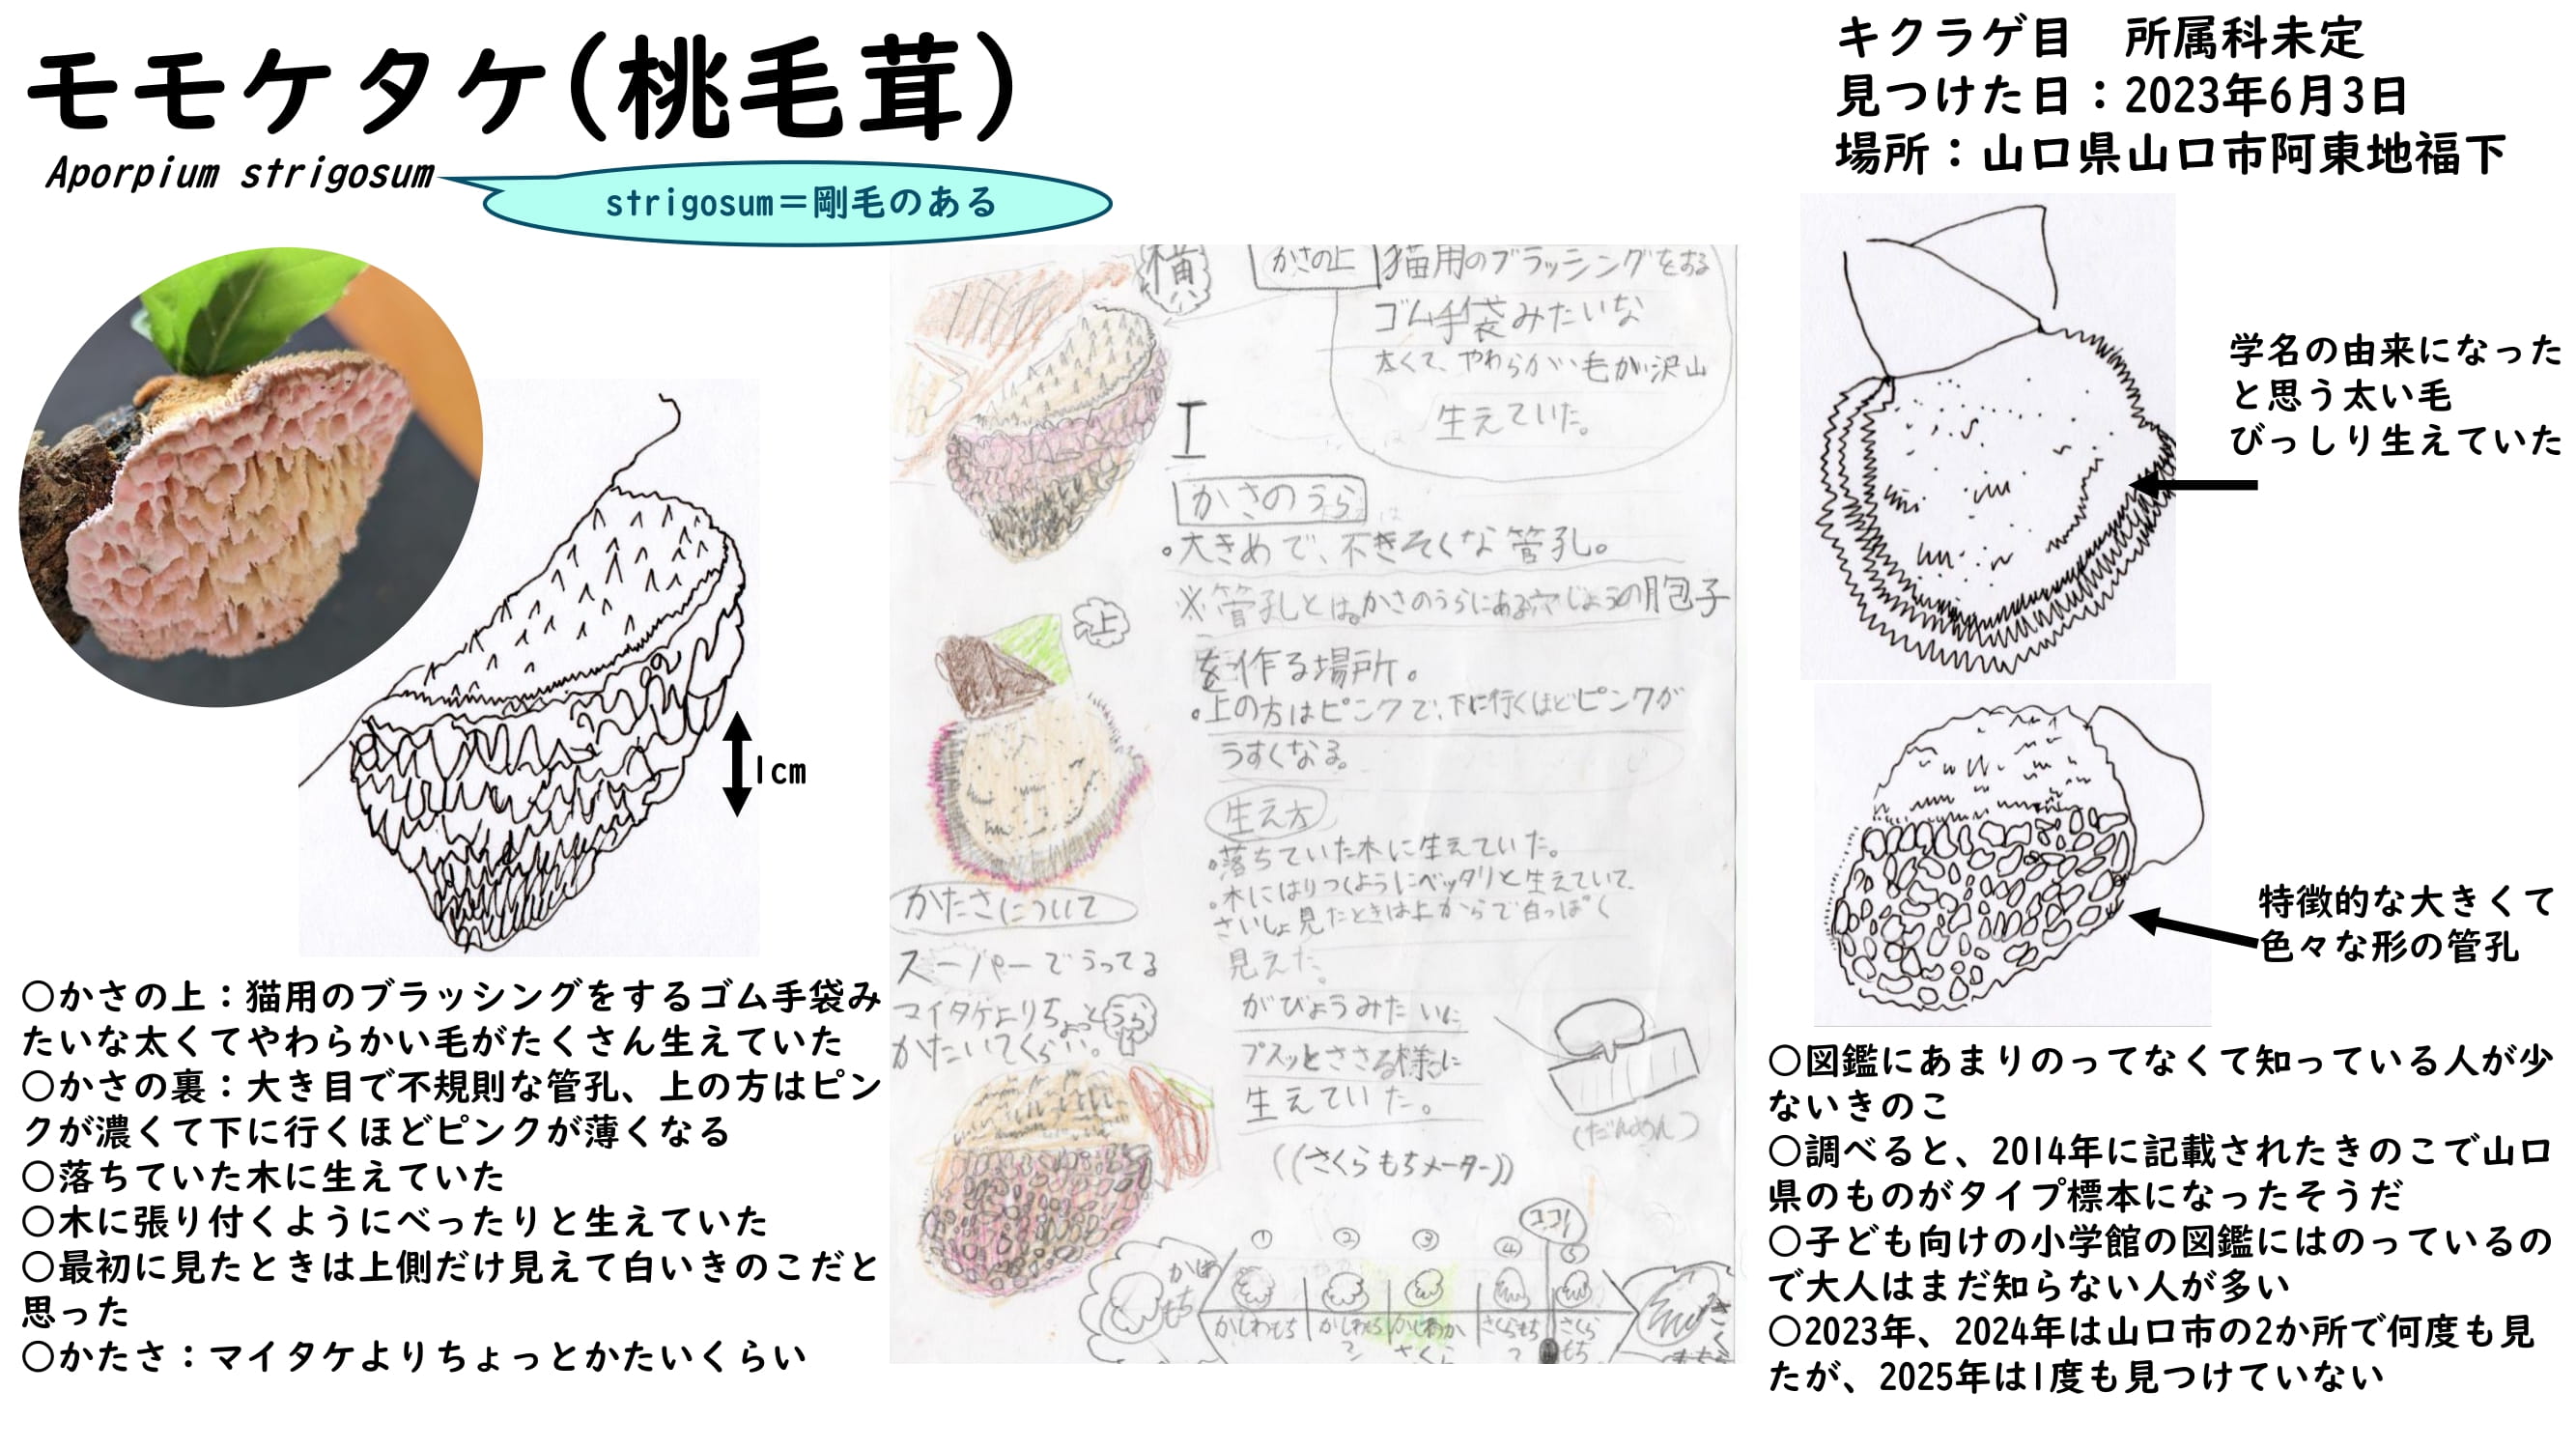 モモケタケ(桃毛茸)
Aporpium strigosum
strigosum=剛毛のある
キクラゲ目　所属科未定
見つけた日：2023年6月3日
場所：山口県山口市阿東地福下
1cm
○かさの上：猫用のブラッシングをするゴム手袋み
たいな太くてやわらかい毛がたくさん生えていた
○かさの裏：大き目で不規則な管孔、上の方はピン
クが濃くて下に行くほどピンクが薄くなる
○落ちていた木に生えていた
○木に張り付くようにべったりと生えていた
○最初に見たときは上側だけ見えて白いきのこだと
思った
○かたさ：マイタケよりちょっとかたいくらい
横
かさの上
猫用のブラッシングをする
ゴム手袋みたいな
太くて、やわらかい毛が沢山
生えていた。
かさのうら
。大きめで、不きそくな管孔。
※管孔とはかさのうらにある穴じょうの胞子
を作る場所。
。上の方はピンクで、下に行くほどピンクが
うすくなる。
上
生え方
。落ちていた木に生えていた。
。木にはりつくようにベッタリと生えていて、
さいしょ見たときは上からで白っぽく
見えた。
がびょうみたいに
プスッとささる様に
生えていた。
(だんめん)
かたさについて
スーパーでうってる
マイタケよりちょっと
かたいくらい。
うら
((さくらもちメーター))
ココ!
① ② ③ ④ ⑤
かしわもち
かしわもち?
さくらもち?
さくらもち
学名の由来になった
と思う太い毛
びっしり生えていた
特徴的な大きくて
色々な形の管孔
○図鑑にあまりのってなくて知っている人が少
ないきのこ
○調べると、2014年に記載されたきのこで山口
県のものがタイプ標本になったそうだ
○子ども向けの小学館の図鑑にはのっているの
で大人はまだ知らない人が多い
○2023年、2024年は山口市の2か所で何度も見
たが、2025年は1度も見つけていない